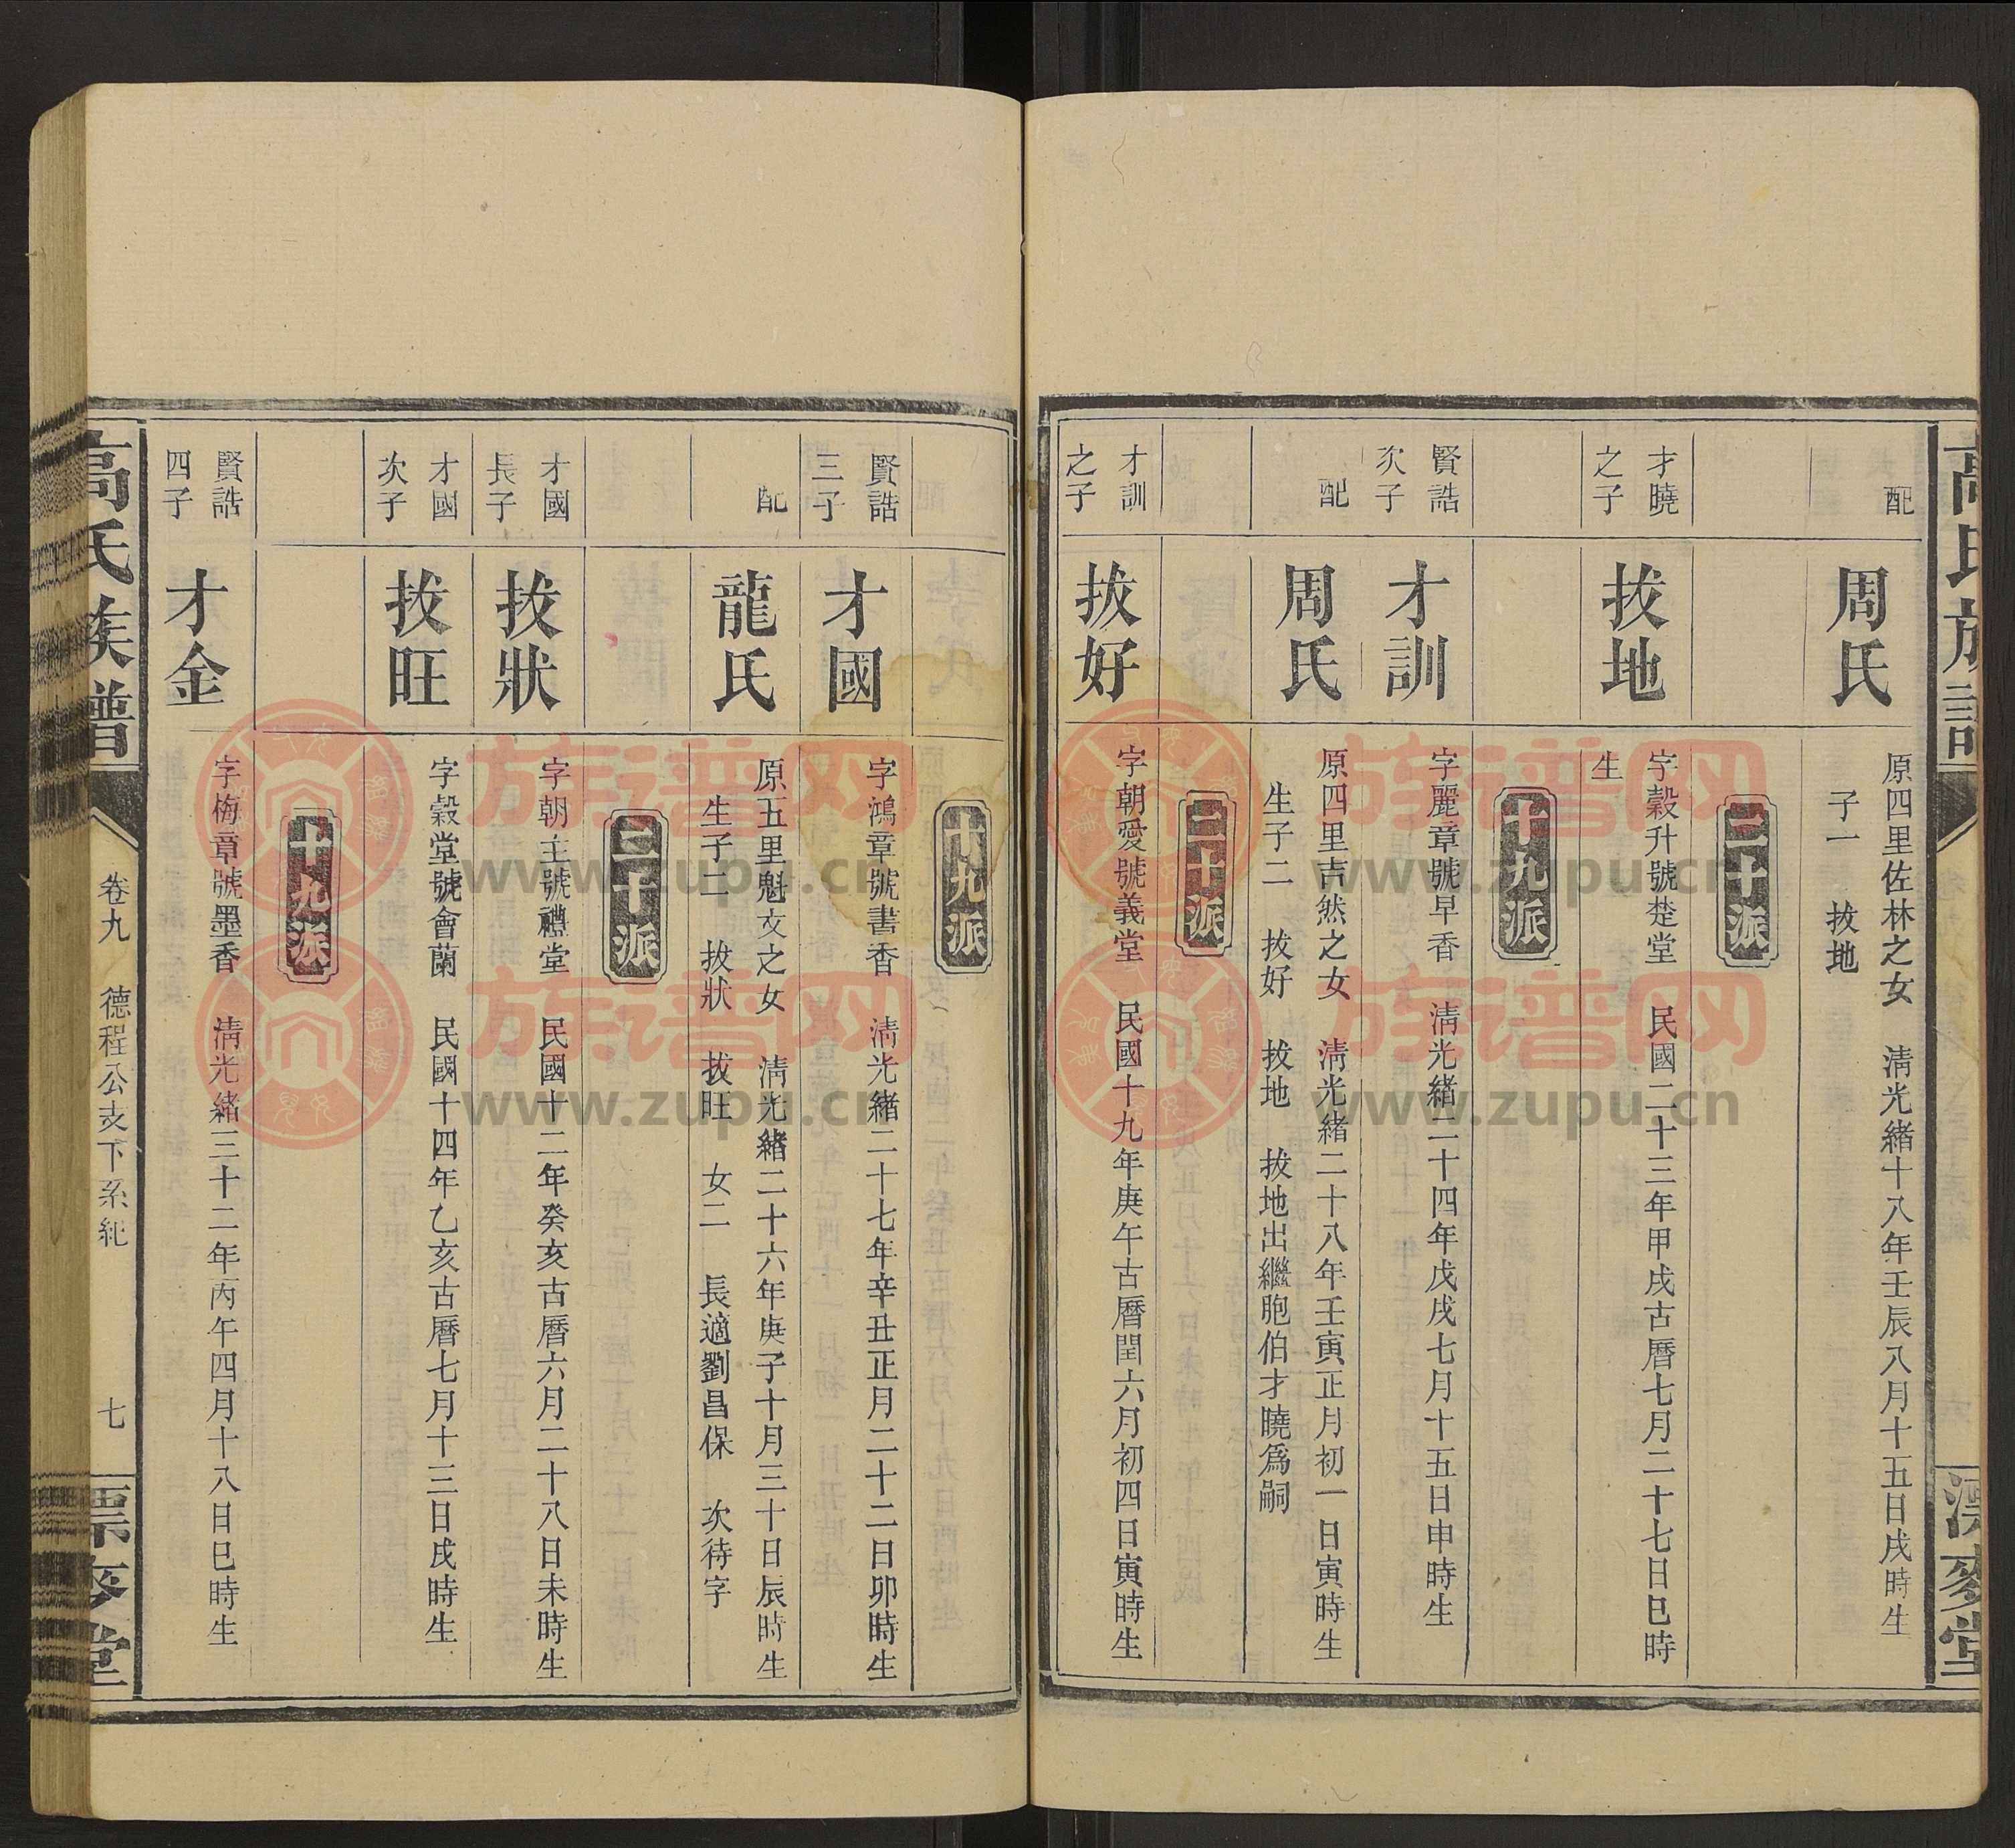 配
周氏
原四里佐林之女　清光緒十八年壬辰八月十五日戌時生
子一　拔地
二十派
才曉
之子
拔地
字穀升號楚堂　民國二十三年甲戌古曆七月二十七日巳時
生
十九派
賢誥
次子
才訓
字麗章號早香　清光緒二十四年戊戌七月十五日申時生
配
周氏
原四里吉然之女　清光緒二十八年壬寅正月初一日寅時生
生子二　拔好　拔地　拔地出繼胞伯才曉爲嗣
二十派
才訓
之子
拔好
字朝愛號義堂　民國十九年庚午古曆閏六月初四日寅時生
十九派
賢誥
三子
才國
字鴻章號書香　清光緒二十七年辛丑正月二十二日卯時生
配
龍氏
原五里魁文之女　清光緒二十六年庚子十月三十日辰時生
生子二　拔狀　拔旺　女二　長適劉昌保　次待字
二十派
才國
長子
拔狀
字朝主號禮堂　民國十二年癸亥古曆六月二十八日未時生
才國
次子
拔旺
字穀堂號會蘭　民國十四年乙亥古曆七月十三日戌時生
十九派
賢誥
四子
才金
字梅章號墨香　清光緒三十二年丙午四月十八日巳時生
高氏族譜
卷九　德程公支下系紀
七
漂麥堂
族谱网
www.zupu.cn
族谱网
www.zupu.cn
族谱网
www.zupu.cn
族谱网
www.zupu.cn